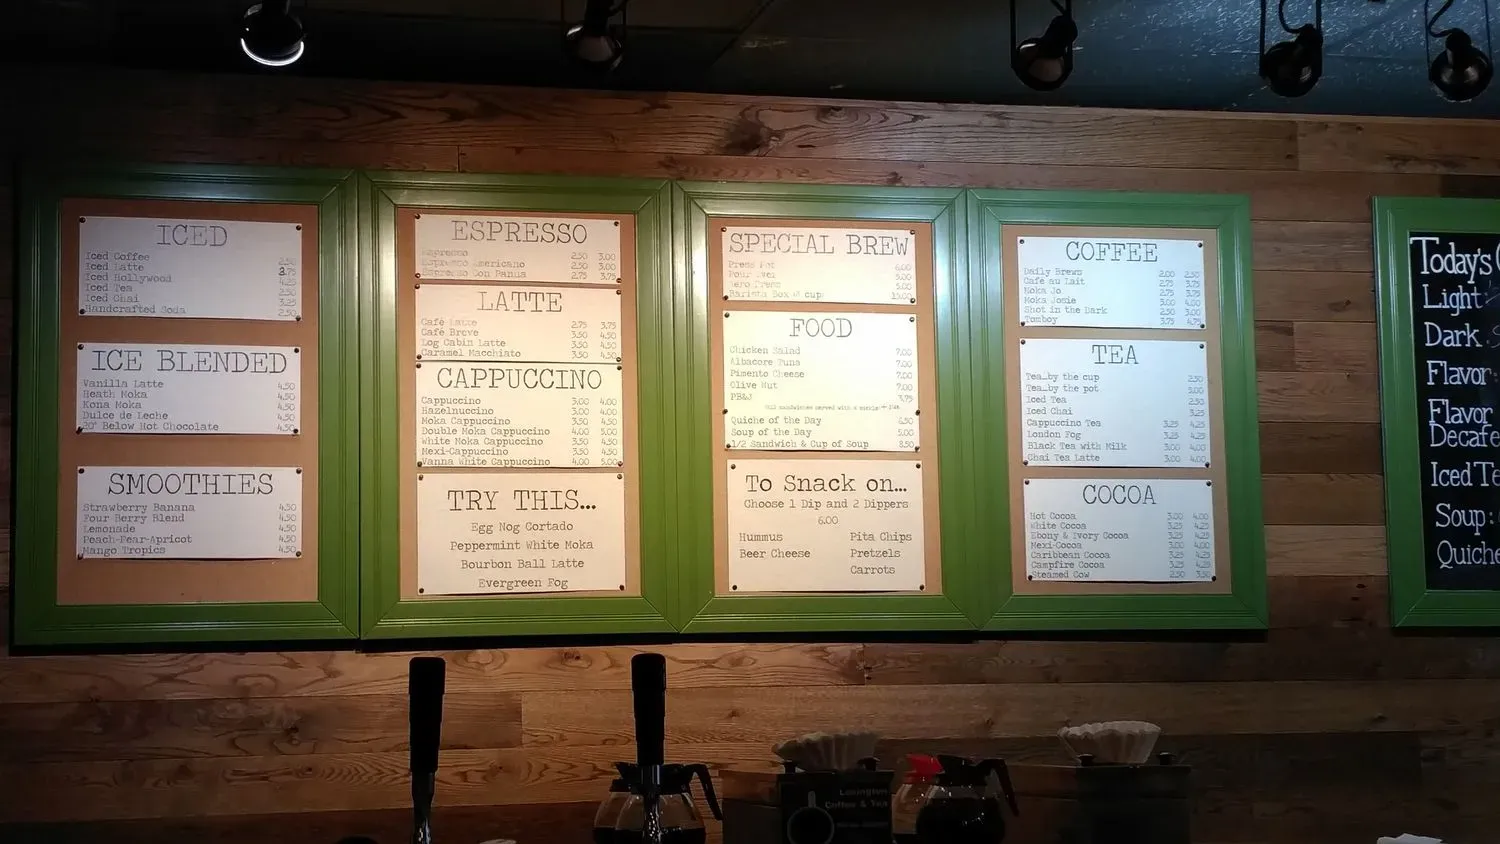 ICED
Iced Coffee 2.50
Iced Latte 3.75
Iced Hollywood 4.25
Iced Tea 2.50
Iced Chai 3.25
Handcrafted Soda 2.50
ICE BLENDED
Vanilla Latte 4.50
Heath Moka 4.50
Kona Moka 4.50
Dulce de Leche 4.50
20° Below Hot Chocolate 4.50
SMOOTHIES
Strawberry Banana 4.50
Four Berry Blend 4.50
Lemonade 4.50
Peach-Pear-Apricot 4.50
Mango Tropics 4.50
ESPRESSO
Espresso 2.50 3.00
Espresso Americano 2.50 3.00
Espresso Con Panna 2.75 3.75
LATTE
Café Latte 2.75 3.75
Café Breve 3.50 4.50
Log Cabin Latte 3.50 4.50
Caramel Macchiato 3.50 4.50
CAPPUCCINO
Cappuccino 3.00 4.00
Hazelnuccino 3.00 4.00
Moka Cappuccino 3.50 4.50
Double Moka Cappuccino 4.00 5.00
White Moka Cappuccino 3.50 4.50
Mexi-Cappuccino 3.50 4.50
Vanna White Cappuccino 4.00 5.00
TRY THIS...
Egg Nog Cortado
Peppermint White Moka
Bourbon Ball Latte
Evergreen Fog
SPECIAL BREW
Press Pot 6.00
Pour Over 5.00
Aero Press 5.00
Barista Box w cup 15.00
FOOD
Chicken Salad 7.00
Albacore Tuna 7.00
Pimento Cheese 7.00
Olive Nut 7.00
PB&J 3.75
*All sandwiches served with a pickle
Quiche of the Day 6.50
Soup of the Day 5.00
1/2 Sandwich & Cup of Soup 8.50
To Snack on...
Choose 1 Dip and 2 Dippers
6.00
Hummus Pita Chips
Beer Cheese Pretzels
Carrots
COFFEE
Daily Brews 2.00 2.50
Café au Lait 2.75 3.75
Moka Jo 2.75 3.75
Moka Josie 3.00 4.00
Shot in the Dark 2.50 3.00
Tomboy 3.75 4.75
TEA
Tea…by the cup 2.50
Tea…by the pot 5.00
Iced Tea 2.50
Iced Chai 3.25
Cappuccino Tea 3.25 4.25
London Fog 3.25 4.25
Black Tea with Milk 3.00 4.00
Chai Tea Latte 3.00 4.00
COCOA
Hot Cocoa 3.00 4.00
White Cocoa 3.25 4.25
Ebony & Ivory Cocoa 3.25 4.25
Mexi-Cocoa 3.00 4.00
Caribbean Cocoa 3.25 4.25
Campfire Cocoa 3.25 4.25
Steamed Cow 2.50 3.50
Today's
Light:
Dark
Flavor:
Flavor
Decafe
Iced Te
Soup:
Quiche
Lexington
Coffee & Tea